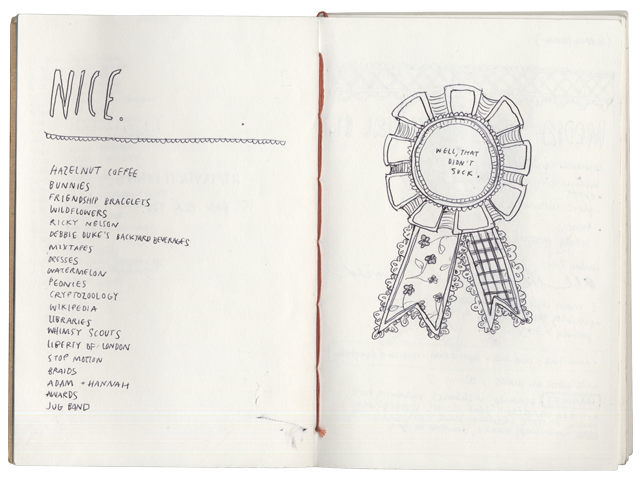 NICE.
HAZELNUT COFFEE
BUNNIES
FRIENDSHIP BRACELETS
WILDFLOWERS
RICKY NELSON
DEBBIE DUKE'S BACKYARD BEVERAGES
MIXTAPES
WATERMELON
PEONIES
CRYPTOZOOLOGY
WIKIPEDIA
LIBRARIES
WHIMSY SCOUTS
LIBERTY OF LONDON
STOP MOTION
BRAIDS
ADAM + HANNAH
AWARDS
JUG BAND
WELL, THAT
DIDN'T
SUCK.